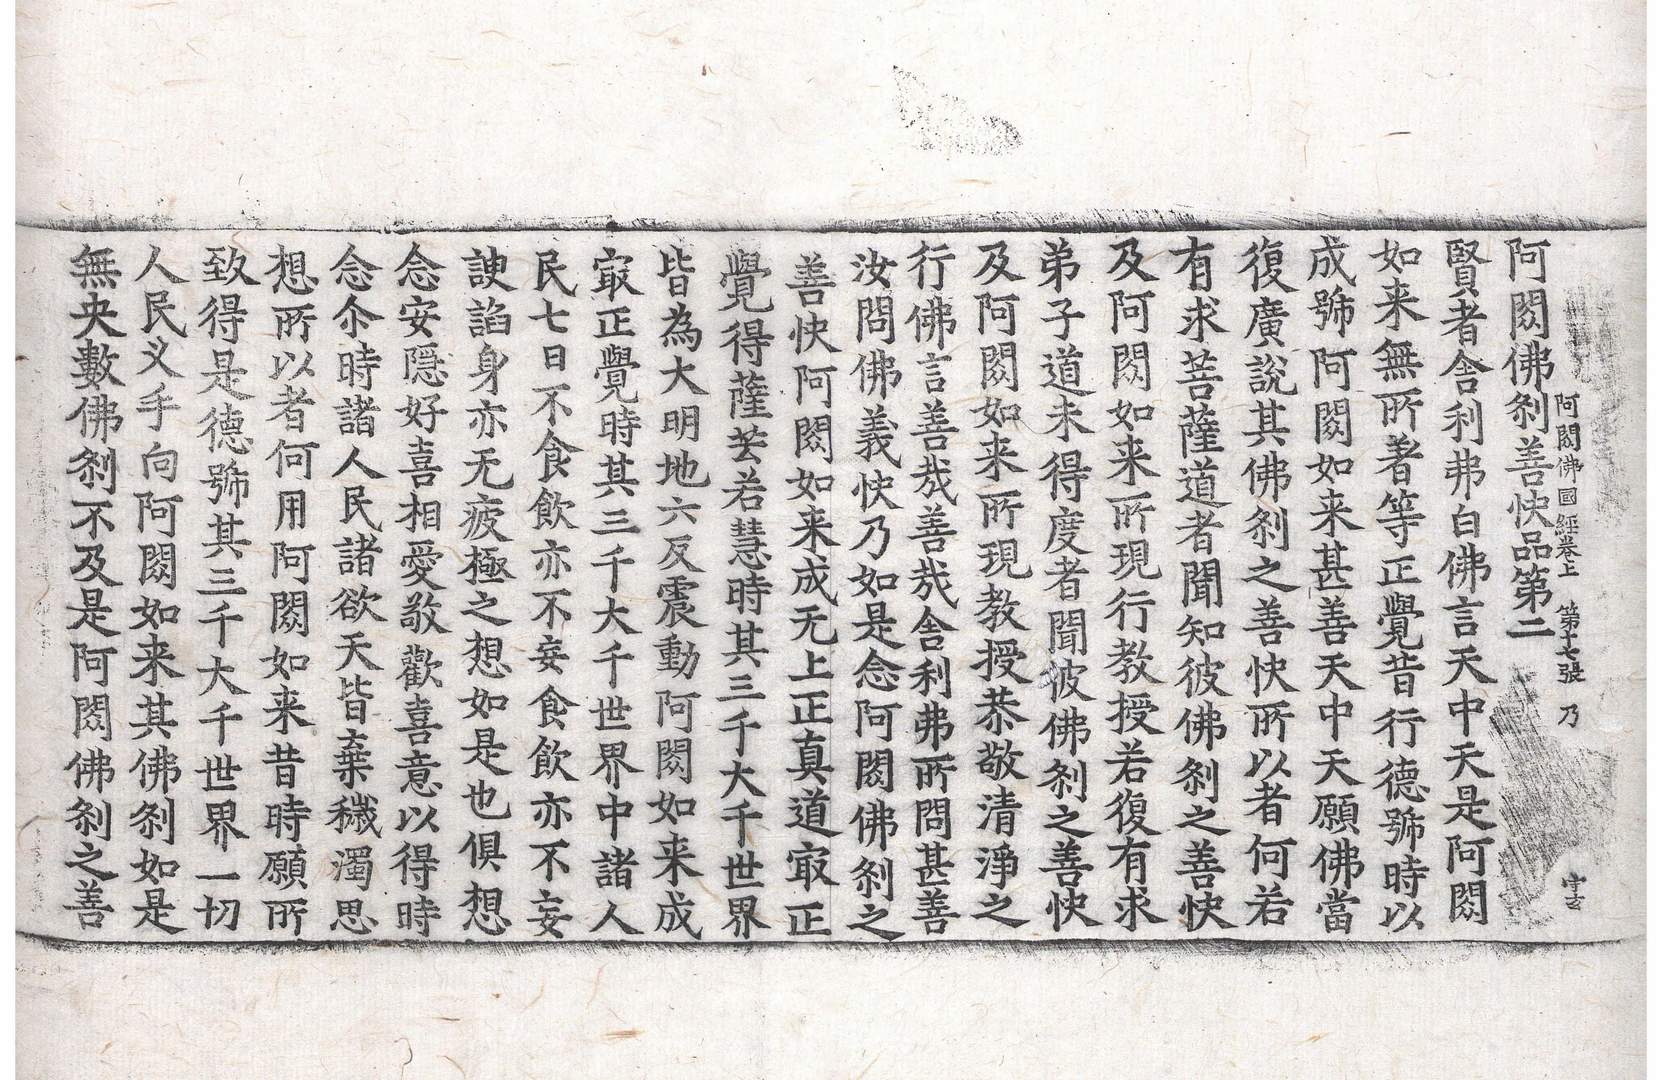 阿閦佛國經卷上　第十七張　乃
阿閦佛刹善快品第二
賢者舍利弗白佛言天中天是阿閦
如来無所著等正覺昔行德號時以
成號阿閦如来甚善天中天願佛當
復廣說其佛刹之善快所以者何若
有求菩薩道者聞知彼佛刹之善快
及阿閦如来所現行教授若復有求
弟子道未得度者聞彼佛刹之善快
及阿閦如来所現教授恭敬清淨之
行佛言善㢤善㢤舍利弗所問甚善
汝問佛義快乃如是念阿閦佛刹之
善快阿閦如来成无上正真道㝡正
覺得薩芸若慧時其三千大千世界
皆為大明地六反震動阿閦如来成
㝡正覺時其三千大千世界中諸人
民七日不食飲亦不妄食飲亦不妄
諛諂身亦无疲極之想如是也俱想
念安隱好喜相愛敬歡喜意以得時
念尒時諸人民諸欲天皆棄穢濁思
想所以者何用阿閦如来昔時願所
致得是德號其三千大千世界一切
人民叉手向阿閦如来其佛刹如是
無央數佛刹不及是阿閦佛刹之善